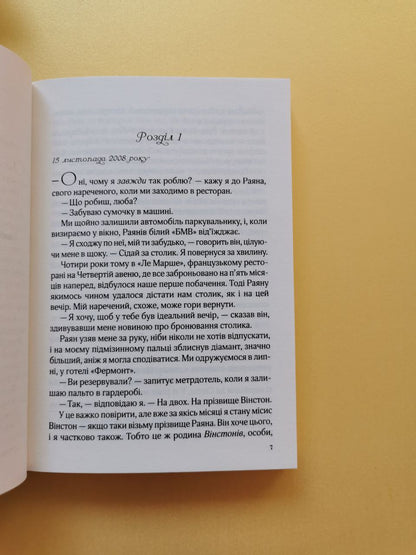 Розділ І
15 листопада 2008 року
— О ні, чому я завжди так роблю? — кажу я до Раяна,
свого нареченого, коли ми заходимо в ресторан.
— Що робиш, люба?
— Забуваю сумочку в машині.
Ми щойно залишили автомобіль паркувальнику, і, коли
визираємо у вікно, Раянів білий «БМВ» від’їжджає.
— Я сходжу по неї, мій ти забудько, — говорить він, цілую-
чи мене в щоку. — Сідай за столик. Я повернуся за хвилину.
Чотири роки тому в «Ле Марше», французькому ресто-
рані на Четвертій авеню, де все заброньовано на п’ять міся-
ців наперед, відбулося наше перше побачення. Тоді Раяну
якимось чином удалося дістати нам столик, як і на цей
вечір. Мій наречений, схоже, може гори вернути.
— Я хочу, щоб у тебе був ідеальний вечір, — сказав він,
здивувавши мене новиною про бронювання столика.
Раян узяв мене за руку, ніби ніколи не хотів відпускати,
і на моєму підмізинному пальці зблиснув діамант, значно
більший, аніж я могла сподіватися. Ми одружуємося в лип-
ні, у готелі «Фермонт».
— Ви резервували? — запитує метрдотель, коли я зали-
шаю пальто в гардеробі.
— Так, — відповідаю я. — На двох. На прізвище Вінстон.
У це важко повірити, але вже за якісь місяці я стану місис
Вінстон — якщо таки візьму прізвище Раяна. Він хоче цього,
і я частково також. Тобто це ж родина Вінстонів, особи,
7